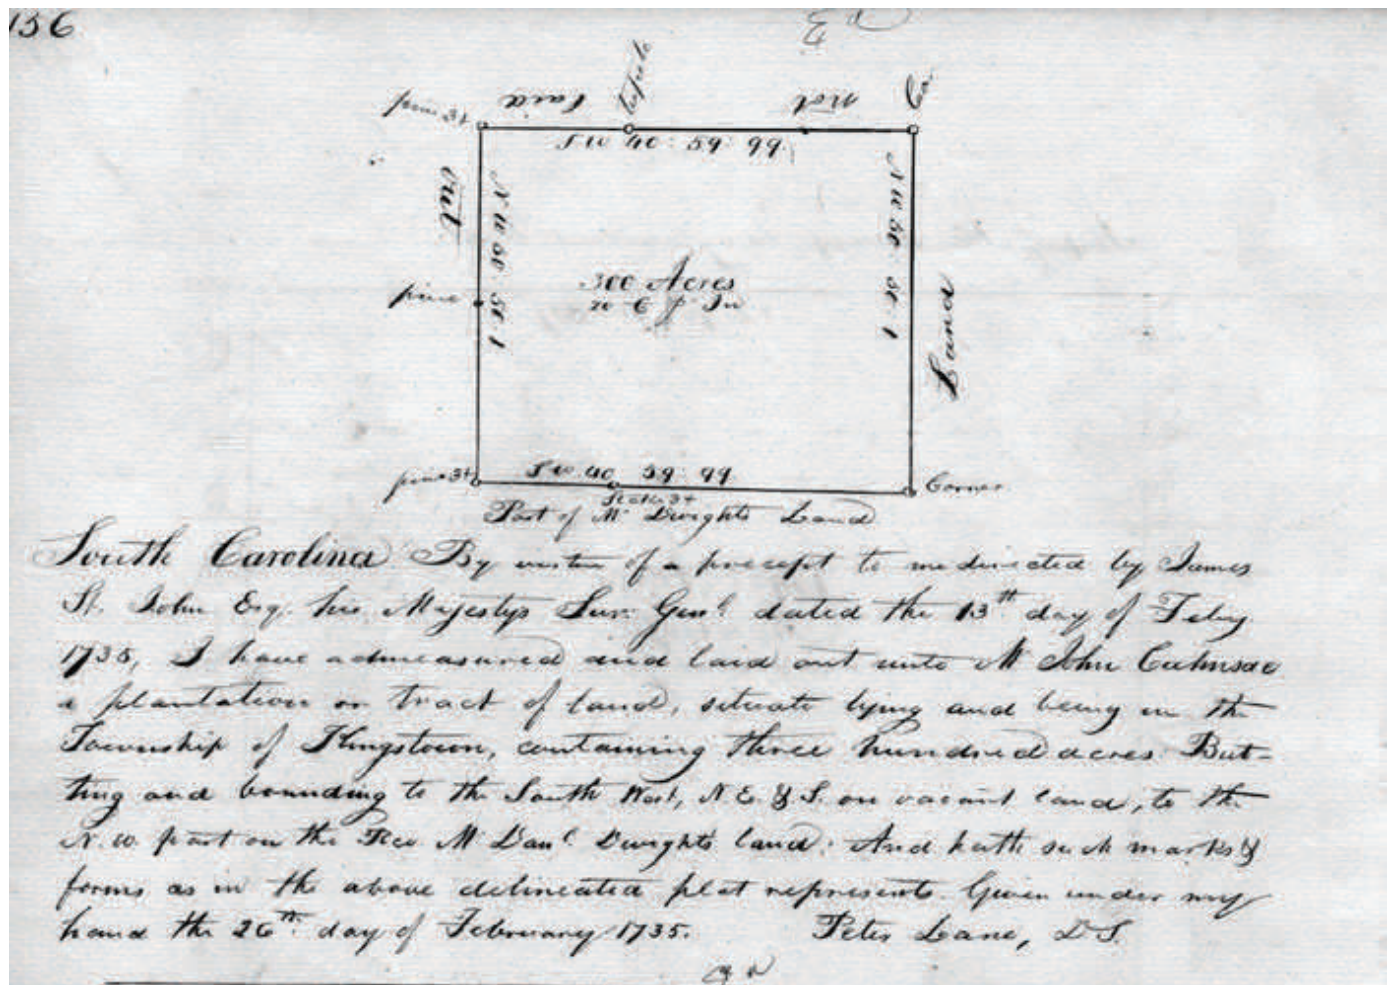 156
Co.
tupelo
Laid
not
pine 3t
S W 40 : 59 : 99
out
N W 50 : 51 : 1
N W 50 : 51 : 1
300 Acres
20 C p In
pine
Land
pine 3t
S W 40 59 : 99
Corner
Stake 3t
Part of Mr Dwights Land
South Carolina By virtue of a precept to me directed by James
St. John Esq. his Majestys Surv: Genl. dated the 13th day of Feby
1735, I have admeasured and laid out unto Mr John
a plantation or tract of land, situate lying and being in the
Township of Kingstown, containing three hundred acres But-
ting and bounding to the South West, N. E. & S. on vacant land, to the
N. W. part on the Rev Mr Danl. Dwights land: And hath such marks &
forms as in the above delineated plat represents. Given under my
hand the 26th day of February 1735. Peter Lane, D S.